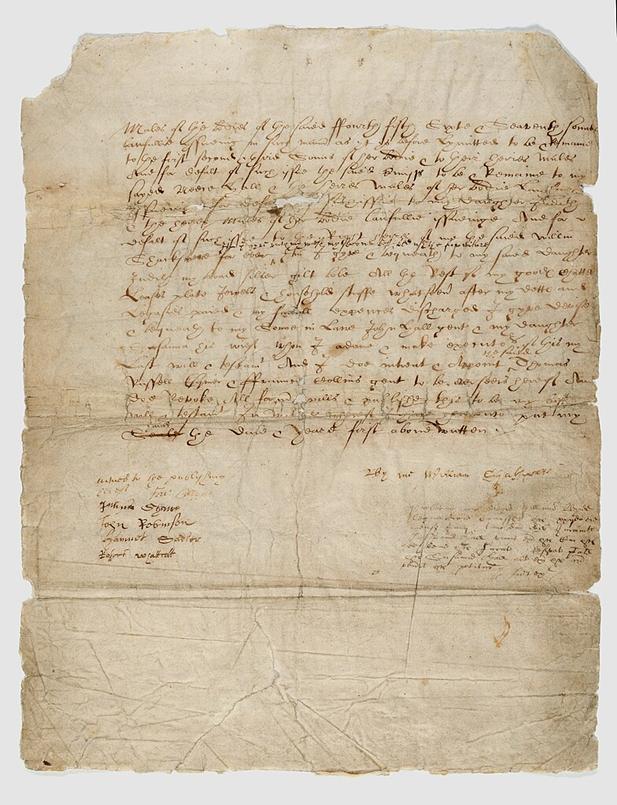 Males of the bodies of the saied ffourth fifth Sixte & Seaventh sonnes
lawfullie yssueing in such manner as yt ys before Lymitted to be & Remaine
to the first second & third Sonns of her bodie & to their heires Males
And for defalt of such yssue the said premisses to be & Remaine to my
sayed Neece Hall & the heires Males of her bodie Lawfully
yssueing for defalt of such issue to my daughter Judith
& the heires Males of her bodie lawfullie yssueinge And for
defalt of such yssue to the Right heires of me the saied Willm
Itm I gyve unto my wief my second best bed with the furniture
Shackspere for ever Itm I gyve & bequeath to my saied daughter
Judith my broad silver gilt bole All the Rest of my goodes Chattels
Leases plate Jewels & household stuffe whatsoever after my dettes and
Legasies paied & my funerall expences discharged I gyve devise
& bequeath to my Sonne in Lawe John Hall gent & my daughter
Susanna his wief whom I ordaine & make executours of this my
the saied
Last will & testament And I doe intreat & Appoint Thomas
Russell Esquier & ffrauncis Collins gent to be overseers hereof And
doe Revoke All former wills & publishe this to be my last
will & testament In witnes whereof I have hereunto put my
hand
Seale the Daie & Yeare first above written
By me William Shakspeare
witnes to the publishing
hereof Fra: Collyns
Julius Shawe
John Robinson
Hamnet Sadler
Robert Whattcott